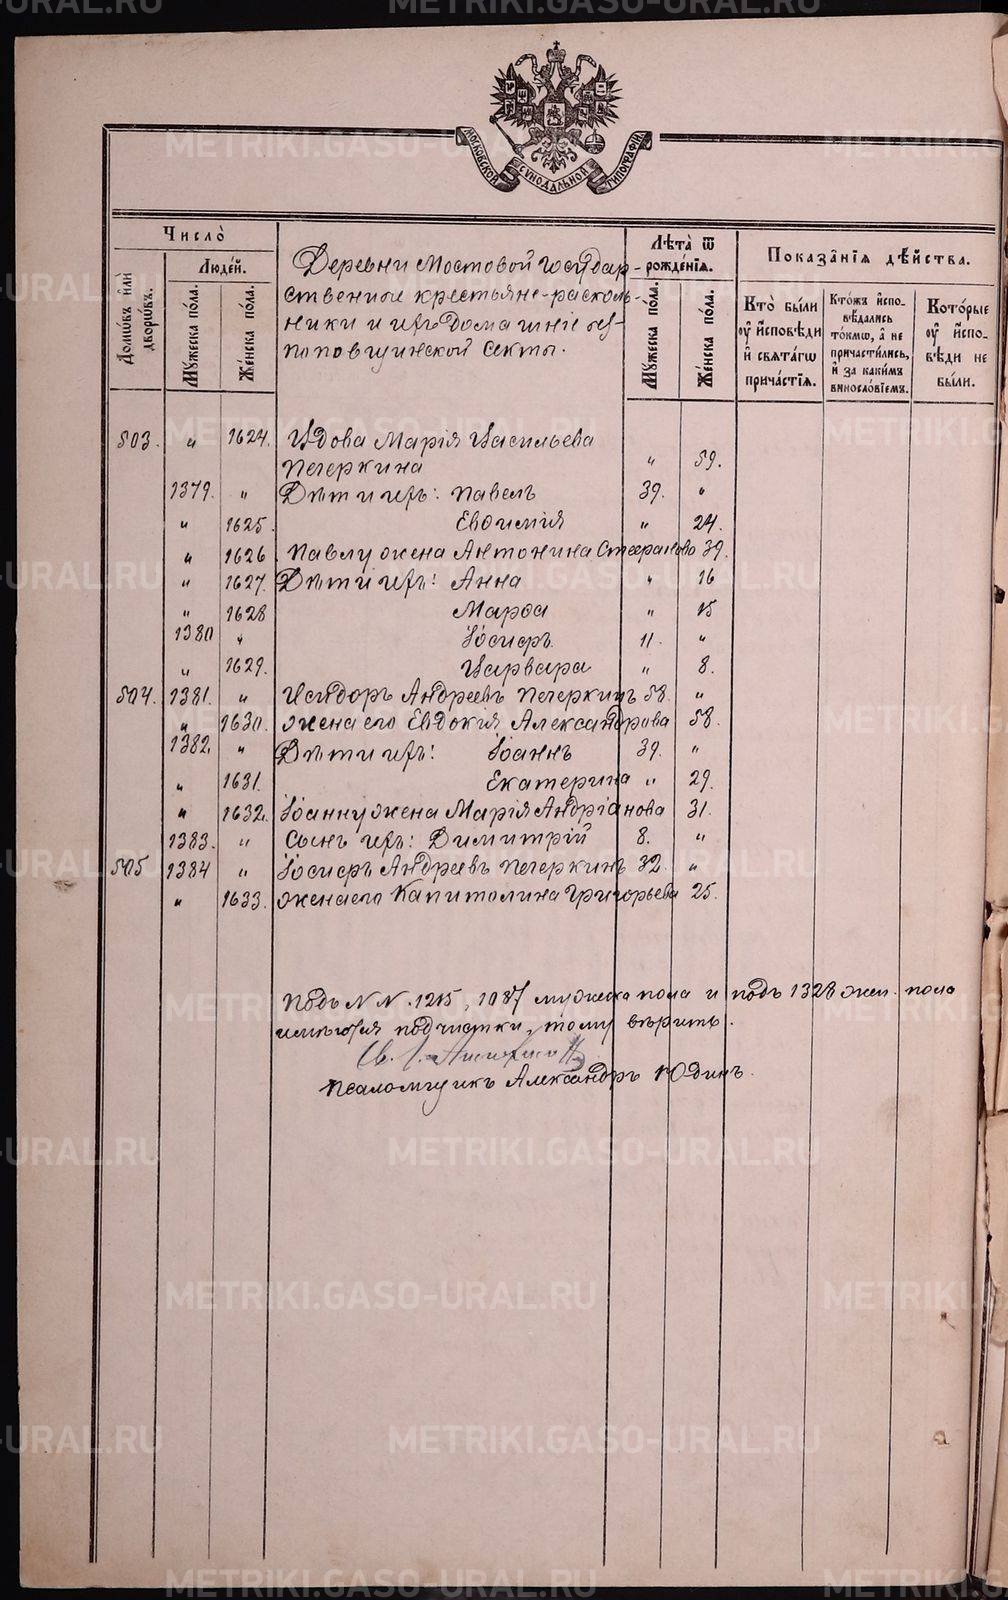 METRIKI.GASO-URAL.RU
МОСКОВСКОЙ СѴНОДАЛЬНОЙ ТИПОГРАФІИ
Число̀
Домѡ́въ и҆лѝ дворѡ́въ.
Люде́й.
Мꙋ́жеска по́ла.
Же́нска по́ла.
Деревни Мостовой государ-
ственные крестьяне-расколь-
ники и ихъ домашніе без-
поповщинской секты.
Лѣ́та ѿ рожде́нїѧ.
Мꙋ́жеска по́ла.
Же́нска по́ла.
Показа̑нїѧ дѣ́йства.
Кто̀ бы́ли ᲂу҆ и҆сповѣ́ди и҆ свѧта́гѡ причастїѧ.
Кто́жъ и҆спо-вѣ́дались то́кмѡ, а҆ не причасти́лись, и҆ за каки́мъ винослов́їемъ.
Кото́рые ᲂу҆ и҆спо-вѣ́ди не бы́ли.
503. " 1624. Вдова Марія Васильева
Печеркина " 59.
1379. " Дѣти ихъ: Павелъ 39. "
" 1625. Евѳимія " 24.
" 1626. Павлу жена Антонина Стефаново 39.
" 1627. Дѣти ихъ: Анна " 16
" 1628 Марѳа " 15
1380 " Іосифъ 11. "
" 1629. Варвара " 8.
504. 1381. " Исидоръ Андреевъ Печеркинъ 58. "
" 1630. Жена его Евдокія Александрова 58.
1382. " Дѣти ихъ: Іоаннъ 39. "
" 1631. Екатерина " 29.
" 1632. Іоанну жена Марія Андріанова 31.
1383. " Сынъ ихъ: Димитрій 8. "
505 1384 " Іосифъ Андреевъ Печеркинъ 32. "
" 1633. Жена его Капитолина Григорьева 25.
Подъ NN. 1215, 1087 мужеска пола и подъ 1328 жен. пола
имѣются подчистки, тому вѣрить.
Псаломщикъ Александръ Юдинъ.